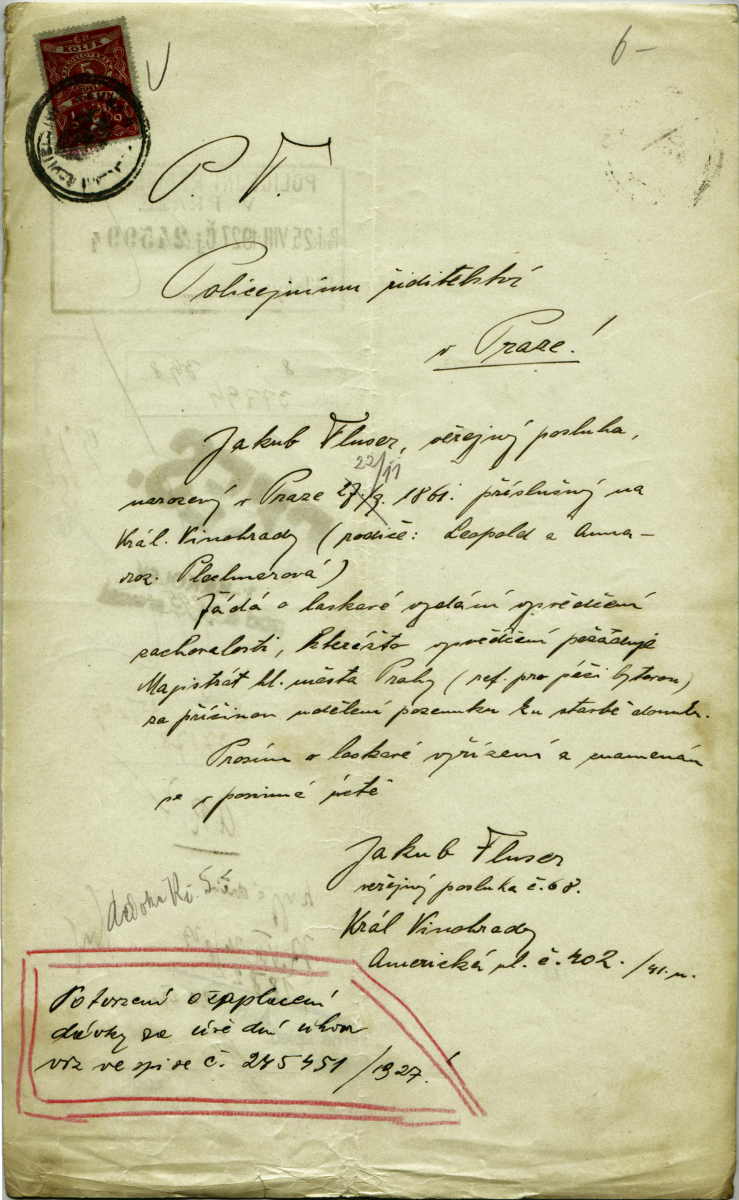 KOLEK
5
6-
P. T.
Policejnímu řiditelství
v Praze!
Jakub Fluser, veřejný posluha,
22/11
narozený v Praze 27./9. 1861. příslušný na
Král. Vinohrady (rodiče: Leopold a Anna –
roz.
Žádá o laskavé vydání vysvědčení
zachovalosti, kteréžto vysvědčení požaduje
Magistrát hl. města Prahy (ref. pro péči bytovou)
za příčinou udělení pozemku ku stavbě domku.
Prosím o laskavé vyřízení a znamenám
se v posinné úctě
Jakub Fluser
veřejný posluha č. 68.
Král Vinohrady
Americká ul. č. 402.
Potvrzení o zaplacení
dávky za úřední úkon
viz ve spise č. 245451/1927.